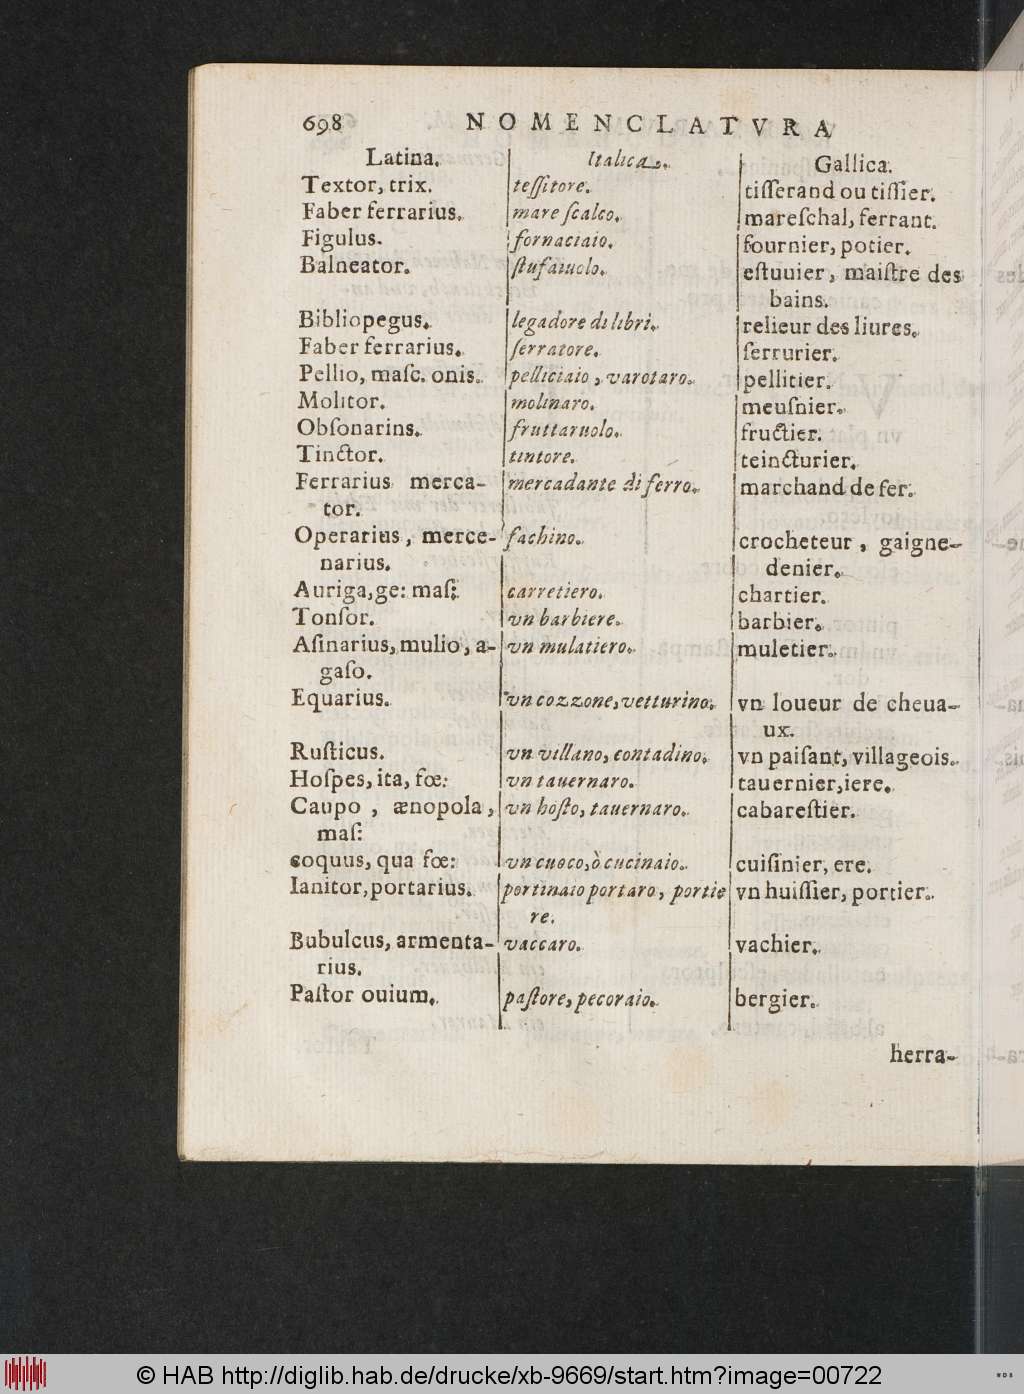 698 NOMENCLATVRA
Latina. Italica. Gallica.
Textor, trix. teſſitore. tiſſerand ou tiſſier.
Faber ferrarius. mareſcalco. mareſchal, ferrant.
Figulus. fornaciaio. fournier, potier.
Balneator. ſtufaiuolo. eſtuuier, maiſtre des
bains.
Bibliopegus. legadore di libri. relieur des liures.
Faber ferrarius. ſerratore. ſerrurier.
Pellio, maſc. onis. pelliciaio, varotaro. pellitier.
Molitor. molinaro. meuſnier.
Obſonarins. fruttaruolo. fructier.
Tinctor. tintore. teincturier.
Ferrarius merca- mercadante di ferro. marchand de fer.
tor.
Operarius, merce- fachino. crocheteur, gaigne-
narius. denier.
Auriga, ge: maſ: carretiero. chartier.
Tonſor. vn barbiere. barbier.
Aſinarius, mulio, a- vn mulatiero. muletier.
gaſo.
Equarius. vn cozzone, vetturino. vn loueur de cheua-
ux.
Ruſticus. vn villano, contadino. vn paiſant, villageois.
Hoſpes, ita, fœ: vn tauernaro. tauernier, iere.
Caupo, ænopola, vn hoſto, tauernaro. cabareſtier.
maſ:
coquus, qua fœ: vn cuoco, ò cucinaio. cuiſinier, ere.
Ianitor, portarius. portinaio portaro, portie vn huiſſier, portier.
re.
Bubulcus, armenta- vaccaro. vachier.
rius.
Paſtor ouium. paſtore, pecoraio. bergier.
herra-
© HAB http://diglib.hab.de/drucke/xb-9669/start.htm?image=00722